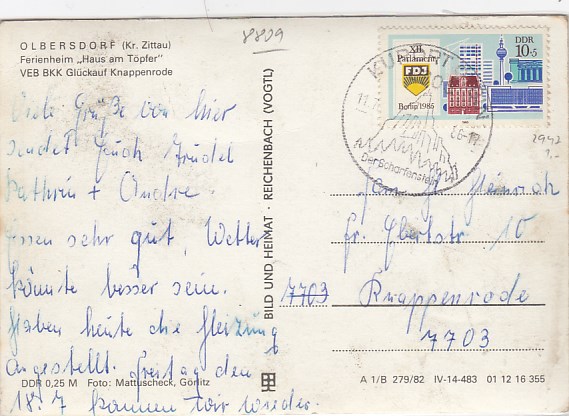 8809
OLBERSDORF (Kr. Zittau)
Ferienheim „Haus am Töpfer"
VEB BKK Glückauf Knappenrode
XII.
Parlament
FDJ
Berlin 1985
DDR
10+5
KURORT
Der Scharfenstein
2947
Viele Grüße von hier
sendet Euch Trudel
Kathrin + Andre
Essen sehr gut, Wetter
könnte besser sein.
Haben heute die Heizung
angestellt. Freitag den
18.7 kommen wir wieder.
BILD UND HEIMAT · REICHENBACH (VOGTL)
Fam. Heinrich
Fr. Ebertstr. 10
7703 Knappenrode
7703
DDR 0,25 M Foto: Mattuscheck, Görlitz
A 1/B 279/82 IV-14-483 01 12 16 355